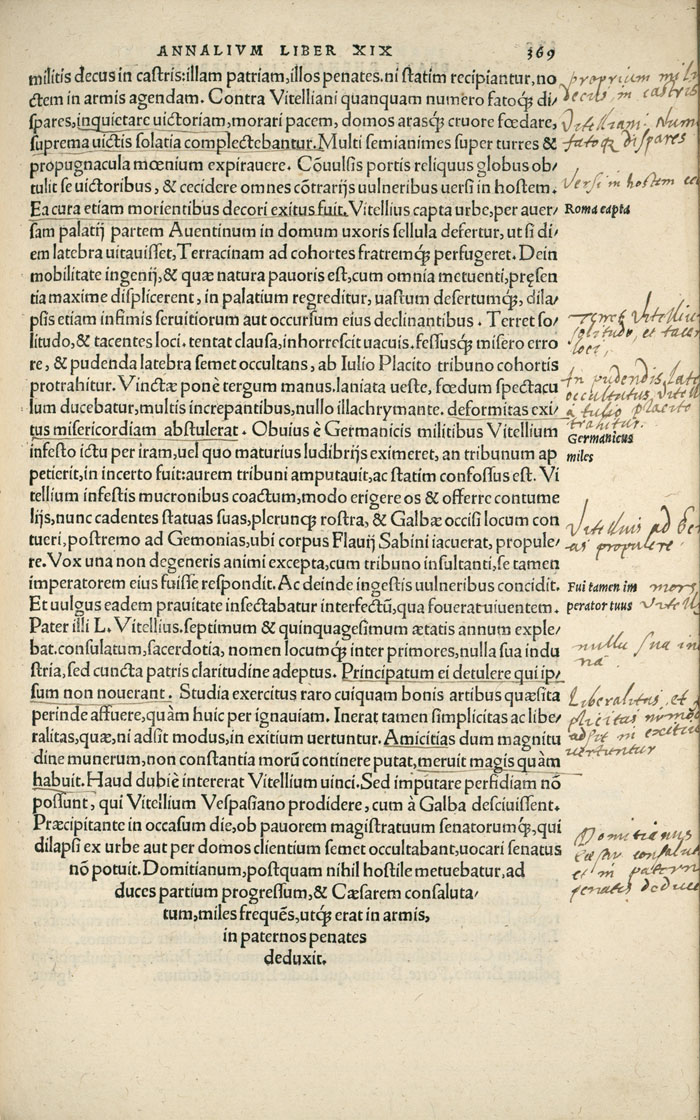 ANNALIVM LIBER XIX 369
militis decus in castris: illam patriam, illos penates. ni statim recipiantur, no
ctem in armis agendam. Contra Vitelliani quanquam numero fatoq́; di/
spares, inquietare uictoriam, morari pacem, domos arasq́; cruore fœdare,
suprema uictis solatia complectebantur. Multi semianimes super turres &
propugnacula mœnium expirauere. Cōuulsis portis reliquus globus ob/
tulit se uictoribus, & cecidere omnes cōtrarijs uulneribus uersi in hostem.
Ea cura etiam morientibus decori exitus fuit. Vitellius capta urbe, per auer/
sam palatij partem Auentinum in domum uxoris sellula defertur, ut si di/
em latebra uitauisset, Terracinam ad cohortes fratremq́; perfugeret. Dein
mobilitate ingenij, & quæ natura pauoris est, cum omnia metuenti, pręsen
tia maxime displicerent, in palatium regreditur, uastum desertumq́;, dila/
psis etiam infimis seruitiorum aut occursum eius declinantibus. Terret so/
litudo, & tacentes loci. tentat clausa, inhorrescit uacuis. fessusq́; misero erro
re, & pudenda latebra semet occultans, ab Iulio Placito tribuno cohortis
protrahitur. Vinctæ ponè tergum manus. laniata ueste, fœdum spectacu
lum ducebatur, multis increpantibus, nullo illachrymante. deformitas exi/
tus misericordiam abstulerat. Obuius è Germanicis militibus Vitellium
infesto ictu per iram, uel quo maturius ludibrijs eximeret, an tribunum ap
petierit, in incerto fuit: aurem tribuni amputauit, ac statim confossus est. Vi
tellium infestis mucronibus coactum, modo erigere os & offerre contume
lijs, nunc cadentes statuas suas, plerunq́; rostra, & Galbæ occisi locum con
tueri, postremo ad Gemonias, ubi corpus Flauij Sabini iacuerat, propule/
re. Vox una non degeneris animi excepta, cum tribuno insultanti, se tamen
imperatorem eius fuisse respondit. Ac deinde ingestis uulneribus concidit.
Et uulgus eadem prauitate insectabatur interfectū, qua fouerat uiuentem.
Pater illi L. Vitellius. septimum & quinquagesimum ætatis annum exple/
bat. consulatum, sacerdotia, nomen locumq́; inter primores, nulla sua indu
stria, sed cuncta patris claritudine adeptus. Principatum ei detulere qui ip/
sum non nouerant. Studia exercitus raro cuiquam bonis artibus quæsita
perinde affuere, quàm huic per ignauiam. Inerat tamen simplicitas ac libe/
ralitas, quæ, ni adsit modus, in exitium uertuntur. Amicitias dum magnitu
dine munerum, non constantia morū continere putat, meruit magis quàm
habuit. Haud dubiè intererat Vitellium uinci. Sed imputare perfidiam nō
possunt, qui Vitellium Vespasiano prodidere, cum à Galba desciuissent.
Præcipitante in occasum die, ob pauorem magistratuum senatorumq́;, qui
dilapsi ex urbe aut per domos clientium semet occultabant, uocari senatus
nō potuit. Domitianum, postquam nihil hostile metuebatur, ad
duces partium progressum, & Cæsarem consaluta/
tum, miles frequēs, utq́; erat in armis,
in paternos penates
deduxit.
proprium mil
decus in castris
Vitelliani Num
fatoq́; dispares
Versi in hostem
Roma capta
Terret Vitelliu
solitudo, et tacen
loci,
In pudendis late
occultatus Vitell
a Iulio placito
trahitur.
Germanicus
miles
Vitellius ad Ge
as propulere
Fui tamen im
perator tuus
mors
Vitell
nulla sua in
Liberalitas et
plicitas
adsit in exitiu
uertuntur
Domitianus
Cæsar consalut
et in patern
penates deduct